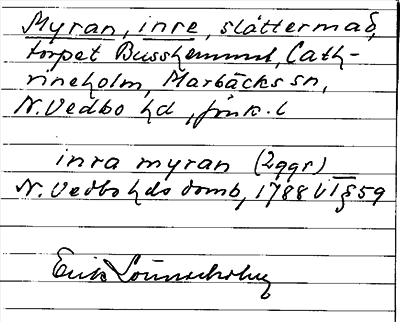 Myran, inre, slåttermad,
torpet Busshemmet, Cath-
rineholm, Marbäcks sn,
N. Vedbo hd, Jönk. l
inra myran (2ggr)
N. Vedbo hds domb, 1788 VI § 59
Erik